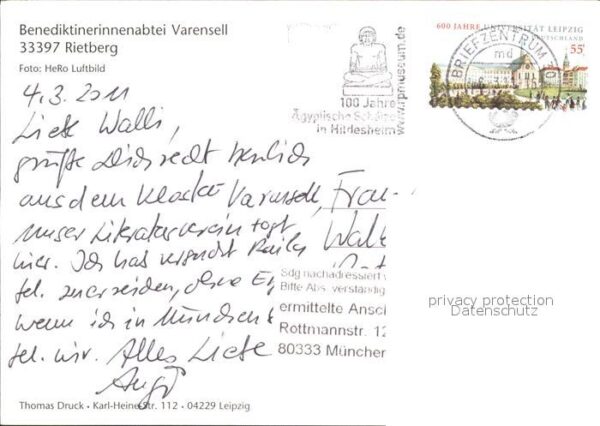 Benediktinerinnenabtei Varensell
33397 Rietberg
Foto: HeRo Luftbild
100 Jahre
Ägyptische Schätze
in Hildesheim
www.rpmuseum.de
600 JAHRE UNIVERSITÄT LEIPZIG
DEUTSCHLAND
55
BRIEFZENTRUM
md
4.3.2011
Liebe Walli,
grüße Dich recht herzlich
aus dem Kloster Varensell, Frau
unser Literaturverein tagt
hier. Ich hab versucht
tel. zu erreichen, ohne
wenn ich in München
tel. wir. Alles Liebe
Sdg nachadressiert
Bitte Abs. verständig
ermittelte Ansch
Rottmannstr. 12
80333 München
privacy protection
Datenschutz
Thomas Druck • Karl-Heine-Str. 112 • 04229 Leipzig